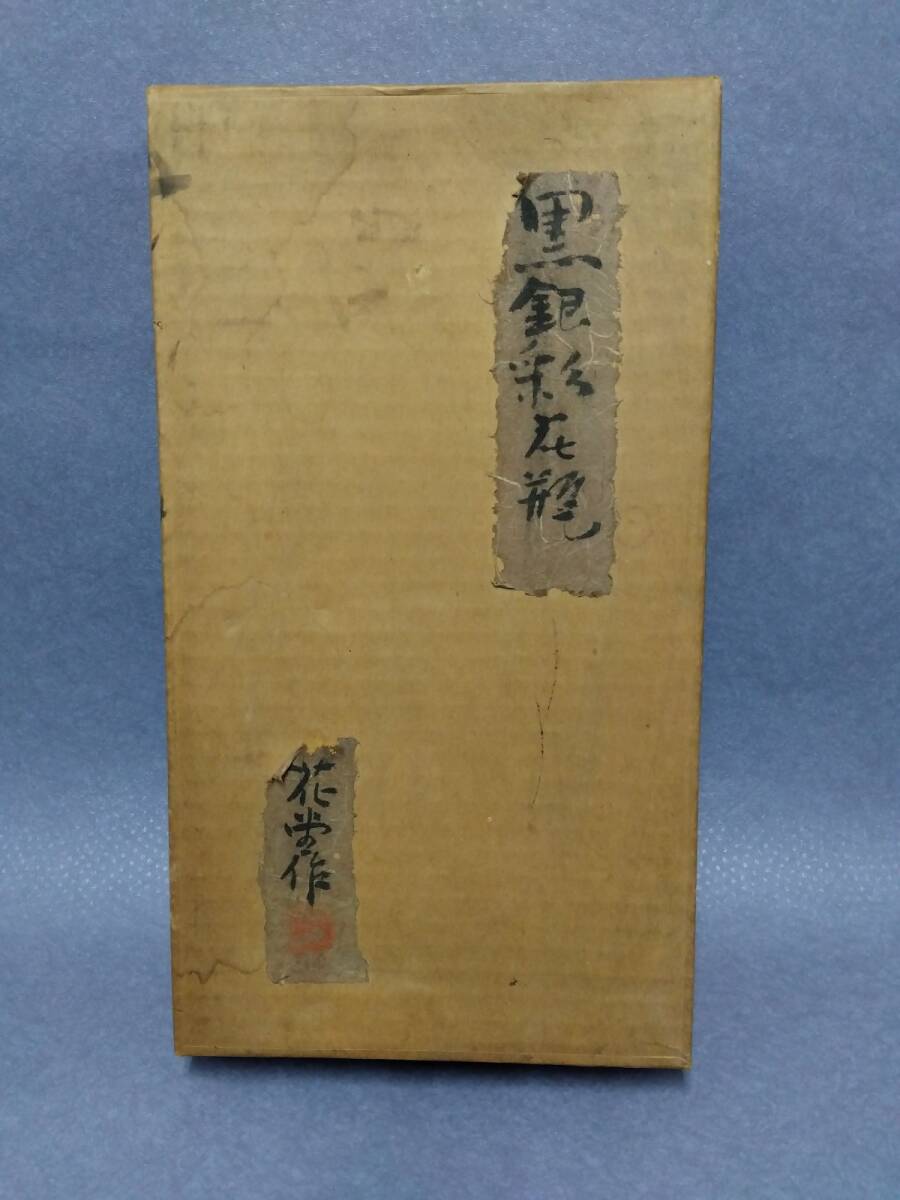 黒銀彩花瓶
花堂作